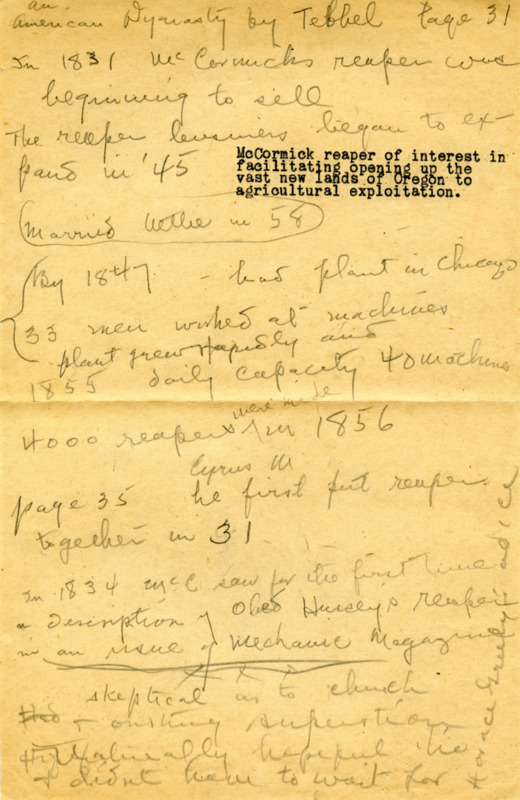 an
American Dynasty by Tebbel Page 31
In 1831 McCormicks reaper was
beginning to sell
The reaper business began to ex-
pand in '45
McCormick reaper of interest in
facilitating opening up the
vast new lands of Oregon to
agricultural exploitation.
Married Nettie in 58
By 1847 - had plant in Chicago
33 men worked at machines
plant grew rapidly and
1855 daily capacity 40 machines
were made
4000 reapers in 1856
Cyrus M
page 35 he first put reaper
together in 31
In 1834 McC saw for the first time
a description of Obed Hussey's reaper
in an issue of Mechanic Magazine
skeptical as to church
hopeful
& didnt have to wait for
Horace